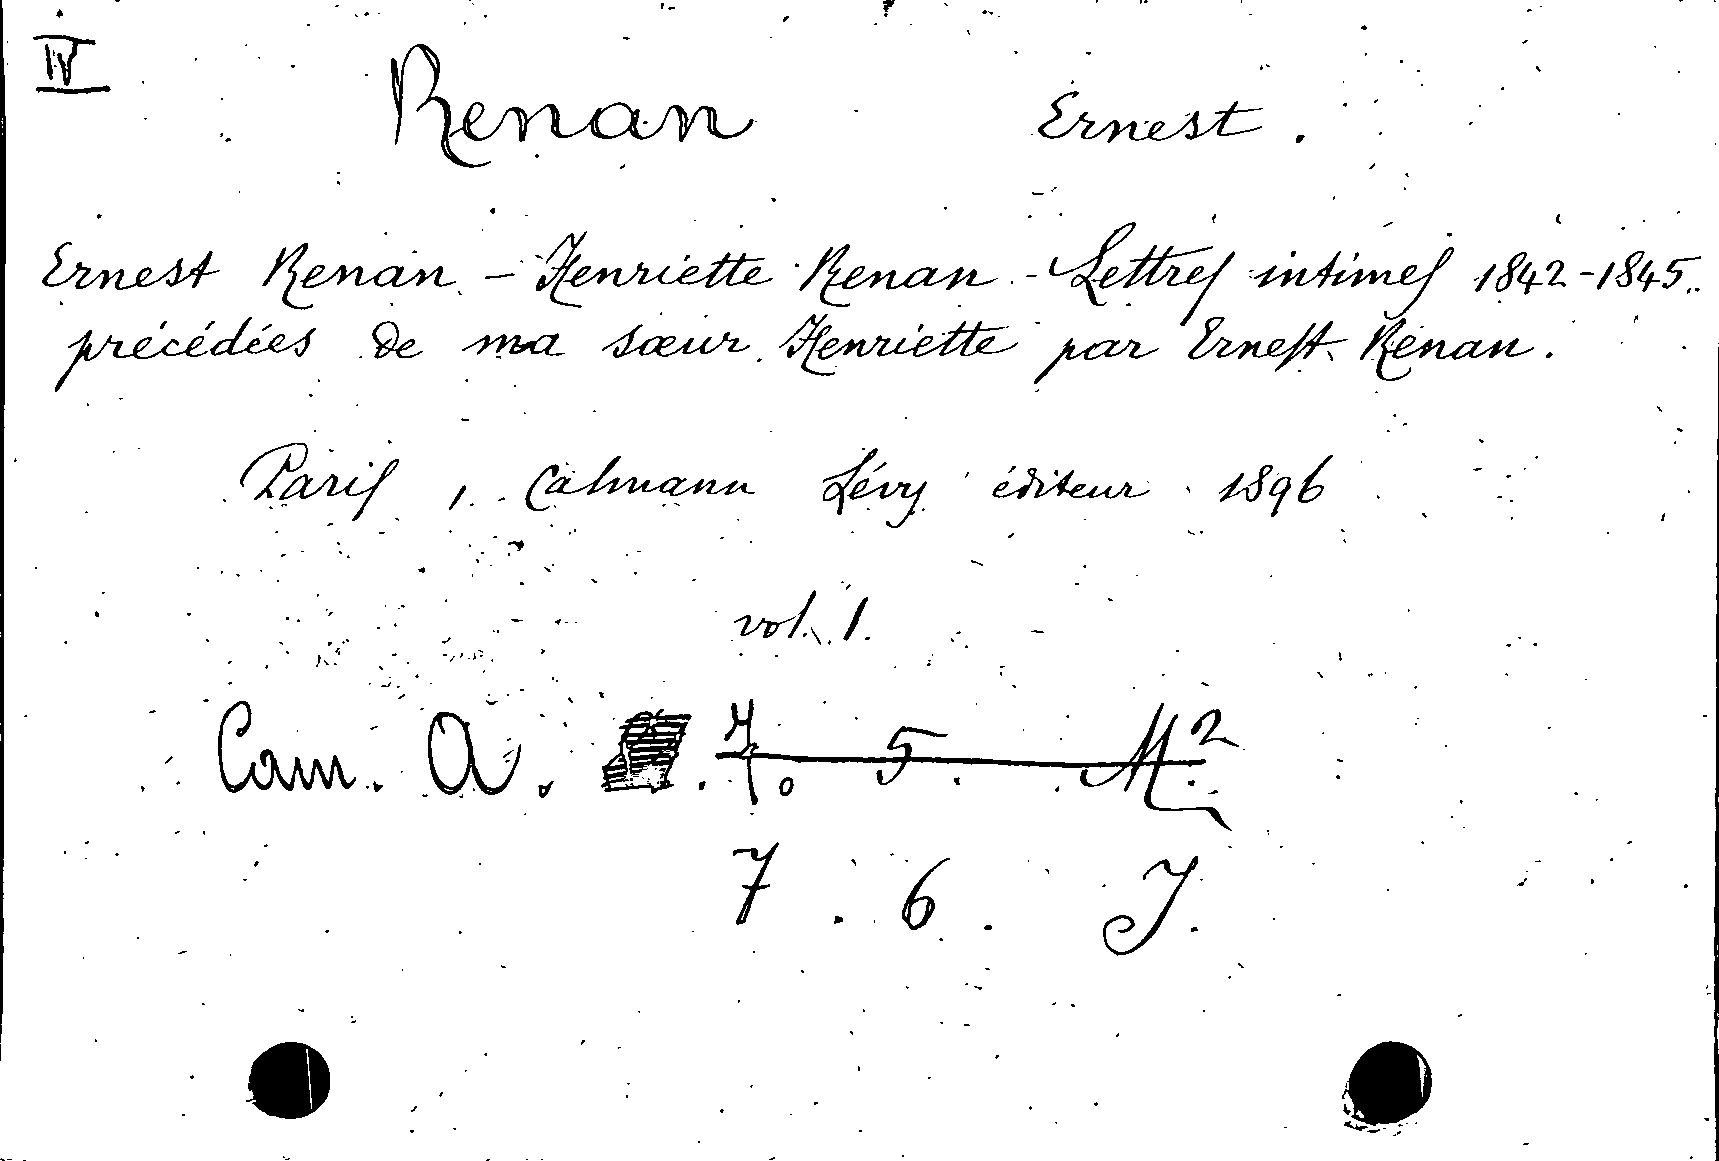 IV
Renan Ernest.
Ernest Renan - Henriette Renan - Lettres intimes 1842-1845.
précédées de ma sœur Henriette par Ernest Renan.
Paris, Calmann Lévy éditeur 1896
vol. 1.
Cam. A. . 7. 5. M²
7 . 6 . J.